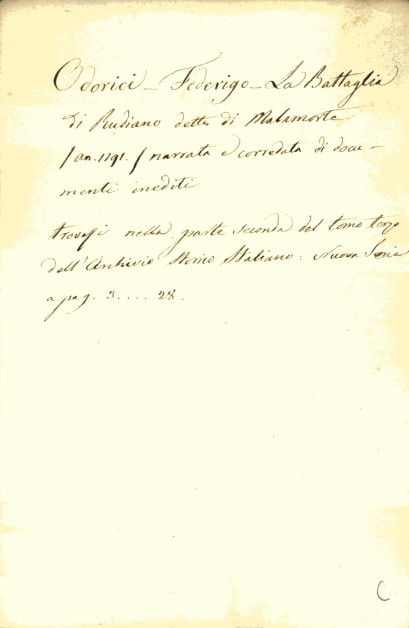 Odorici - Federigo - La Battaglia
di Rudiano detta di Malamorte
/ an. 1191. / narrata e corredata di docu-
menti inediti
trovasi nella parte seconda del tomo terzo
dell'Archivio Storico Italiano: Nuova Serie
a pag. 3.... 28.